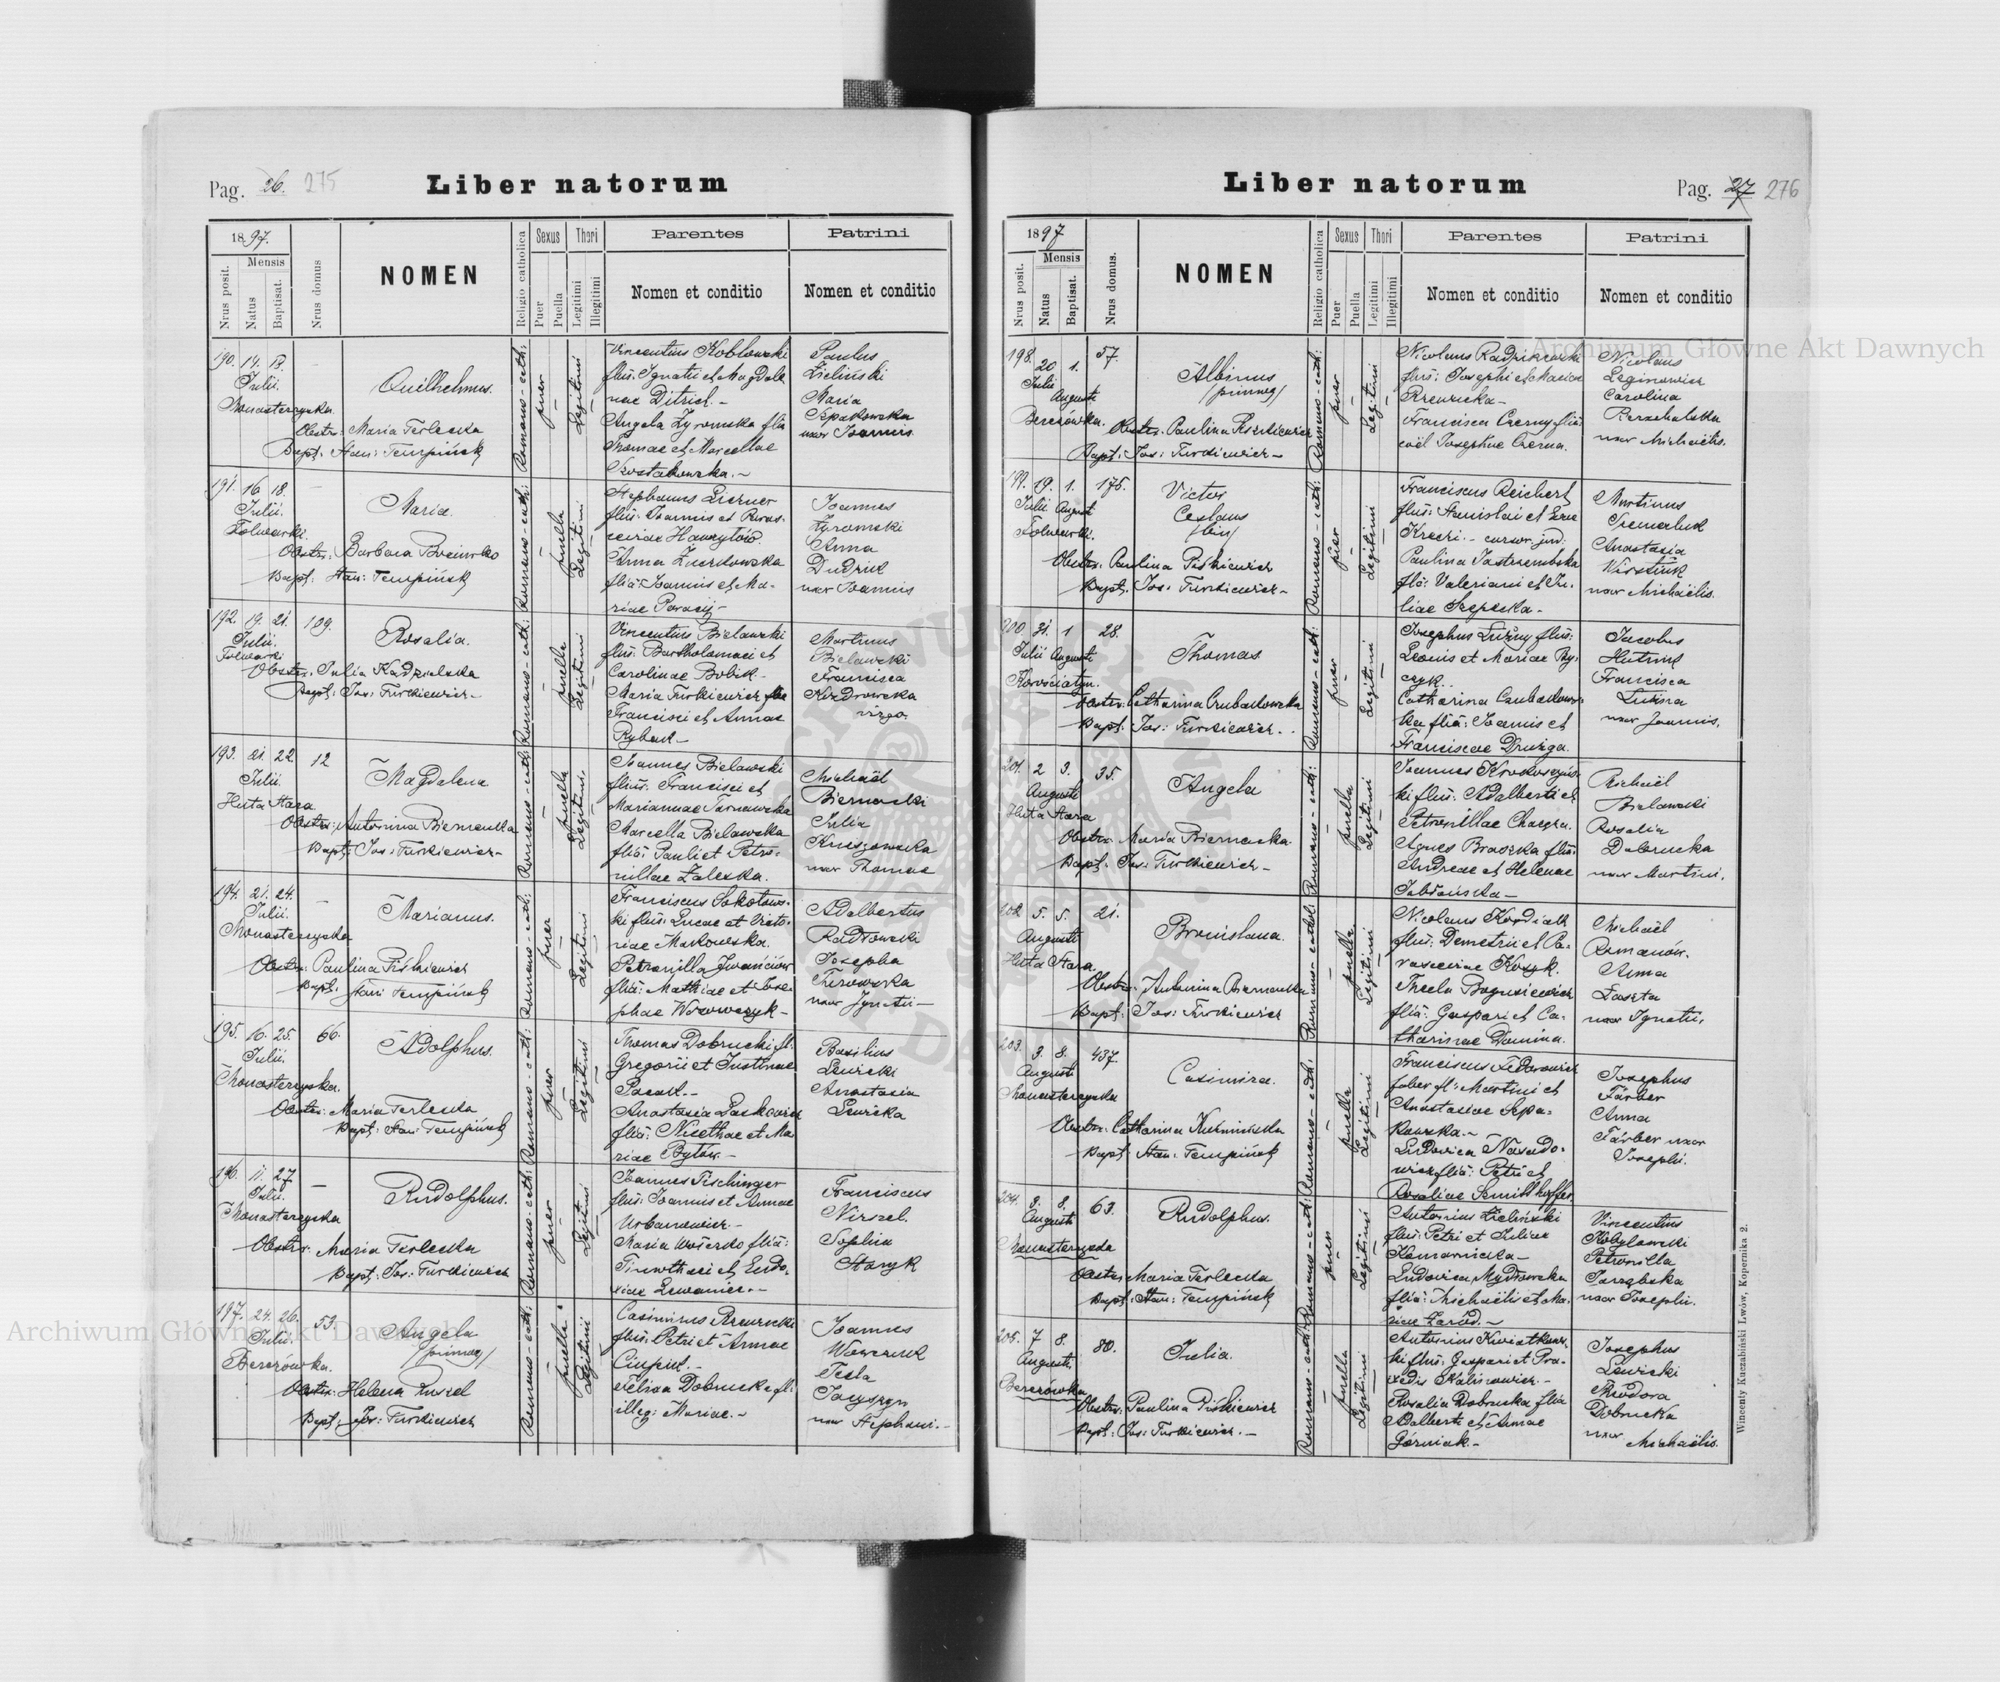 Pag. 26. 275
Liber natorum
1897.
Mensis
Nrus posit.
Natus
Baptisat.
Nrus domus
NOMEN
Religio catholica
Sexus
Puer
Puella
Thori
Legitimi
Illegitimi
Parentes
Nomen et conditio
Patrini
Nomen et conditio
190. 14. 18. —
Julii.
Monasterzyska.
Quilhelmus.
Obstr: Maria Terlecka
Bapt: Stan: Tempiński
Romano-cath:
puer
Legitimi
Vincentius Koblowski
flius: Ignatii et Magdale
nae Ditrich. —
Angela Zyromska flia
Thomae et Marcellae
Szostakowska. —
Paulus
Zieliński
Maria
uxor Joannis
191. 16. 18. —
Julii.
Folwarki.
Maria.
Obstr: Barbara
Bapt: Stan: Tempiński
Romano-cath:
puella
Legitimi
Stephanus
flius: Joannis et Paras-
ceviae Hawryłów.
Anna
flia: Joannis et Ma-
riae
Joannes
Żyromski
Anna
Dudzik
uxor Joannis
192. 19. 21. 109.
Julii.
Folwarki
Rosalia.
Obstr: Julia
Bapt: Jos: Turkiewicz —
Romano-cath:
puella
Legitimi
Vincentius Bielawski
flius: Bartholomaei et
Carolinae Bobik —
Maria Turkiewicz flia
Francisci et Annae
Rybak —
Martinus
Bielawski
Francisca
virgo.
193. 21. 22. 12
Julii.
Huta Stara.
Magdalena
Obstr: Antonina Biernacka
Bapt: Jos: Turkiewicz —
Romano-cath:
puella
Legitimi
Joannes Bielawski
flius: Francisci et
Mariannae Tarnawska
Marcella Bielawska
flia: Pauli et Petro-
nillae Zaleska.
Michaël
Biernacki
Julia
Kruszowska
uxor Thomae
194. 21. 24. —
Julii.
Monasterzyska
Marianus.
Obstr: Paulina Piśkiewicz
Bapt: Stan: Tempiński
Romano-cath:
puer
Legitimi
Franciscus Sokołows-
ki flius: Lucae et Victo-
riae Makowska.
Petronilla Iwanciów
flia: Mathiae et Jose-
phae —
Adalbertus
Radłowski
Josepha
uxor Ignatii —
195. 16. 25. 66.
Julii.
Monasterzyska.
Adolphus.
Obstr: Maria Terlecka
Bapt: Stan: Tempiński
Romano-cath:
puer
Legitimi
Thomas Dobrucki fl:
Gregorii et Justinae
Anastasia
flia: Nicethae et Ma
riae Bytów. —
Basilius
Lewicki
Anastasia
Lewicka
196. 11. 27 —
Julii.
Monasterzyska
Rudolphus.
Obstr: Maria Terlecka
Bapt: Jos: Turkiewicz
Romano-cath:
puer
Legitimi
Joannes Tischinger
flius: Joannis et Annae
Urbanowicz —
Maria flia:
Timothaei et Eudo-
xiae —
Franciscus
Nirszel.
Sophia
Staryk
197. 24. 26. 53.
Julii.
Bereżówka.
Angela
/primag/
Obstr: Helena
Bapt: Jos: Turkiewicz
Romano-cath:
puella
Legitimi
Casimirus
flius: Petri et Annae
Felixa Dobrucka fl:
illeg: Mariae. —
Joannes
Wawczuk
Tecla
uxor Stephani. —
Liber natorum
Pag. 27 276
1897
Mensis
Nrus posit.
Natus
Baptisat.
Nrus domus.
NOMEN
Religio catholica
Sexus
Puer
Puella
Thori
Legitimi
Illegitimi
Parentes
Nomen et conditio
Patrini
Nomen et conditio
198. 20 1. 57.
Julii Augusti
Bereżówka.
Albinus
/primag/
Obstr. Paulina Piszkiewicz
Bapt: Jos: Turkiewicz —
Romano-cath:
puer
Legitimi
Nicolaus
flius: Josephi et Mariae
Francisca Czerny flia:
coël Josephae Czerna.
Nicolaus
Leginowicz
Carolina
uxor Michaëlis.
199. 19. 1. 175.
Julii August
Folwarki.
Victor
Ceslaus
/bin/
Obstr. Paulina Piśkiewicz
Bapt. Jos: Turkiewicz —
Romano-cath:
puer
Legitimi
Franciscus Reichert
flius: Stanislai et Evae
Paulina Jastrzembska
flia: Valeriani et Ju-
liae —
Martinus
Anastasia
uxor Michaëlis.
200 31. 1 28.
Julii Augusti
Korościatyn.
Thomas
Obstr: Catharina Czubakowska
Bapt: Jos: Turkiewicz.
Romano-cath:
puer
Legitimi
Josephus Luźny flius:
Leonis et Mariae By-
czyk.
Catharina Czubakows-
ka flia: Joannis et
Franciscae Drużga.
Jacobus
Francisca
Luźna
uxor Joannis.
201. 2 3. 35.
Augusti
Huta Stara
Angela
Obstr: Maria Biernacka
Bapt: Jos: Turkiewicz —
Romano-cath:
puella
Legitimi
Joannes Krokoszyńs-
ki flius: Adalberti et
Petronillae
Agnes flia:
Andreae et Helenae
Jabłońska —
Michaël
Bielawski
Rosalia
Dobrucka
uxor Martini.
202 5. 5. 21.
Augusti
Huta Stara.
Bronislaua.
Obstr: Antonina Biernacka
Bapt: Jos: Turkiewicz
Romano-cathol:
puella
Legitimi
Nicolaus Kordiak
flius: Demetrii et Pa-
rasceviae Kosyk.
Thecla Bogusiewicz
flia: Gaspari et Ca-
tharinae Domina.
Michaël
Romanów.
Anna
Zaszta
uxor Ignatii.
203. 3. 8. 437.
Augusti
Monasterzyska
Casimira.
Obstr: Catharina Kuźmińska
Bapt: Stan: Tempiński
Romano-cath:
puella
Legitimi
Franciscus Fedorowicz
faber fl: Martini et
Anastasiae Szpa-
kowska. —
Ludovica
flia: Petri et
Rosaliae
Josephus
Färber
Anna
Färber uxor
Josephi.
204. 3. 8. 63.
Augusti
Monasterzyska
Rudolphus.
Obstr. Maria Terlecka
Bapt: Stan: Tempiński
Romano-cath:
puer
Legitimi
Antonius Zieliński
flius: Petri et Juliae
Komarnicka —
Ludovica Mydłowska
flia: Michaëlis et Ma-
riae Zaród. —
Vincentius
Kobylowski
Petronella
uxor Josephi.
205. 7 8. 80.
Augusti
Bereżówka
Julia.
Obstr: Paulina Piśkiewicz
Bapt: Jos: Turkiewicz. —
Romano-cath:
puella
Legitimi
Antonius Kwiatkows-
ki flius: Gaspari et Pra-
xedis Kalinowicz. —
Rosalia Dobrucka flia
Adalberti et Annae
Górniak. —
Josephus
Lewicki
Theodora
Dobrucka
uxor Michaëlis.
Wincenty Kuczabiński Lwów, Kopernika 2.
Archiwum Główne Akt Dawnych
Archiwum Główne Akt Dawnych